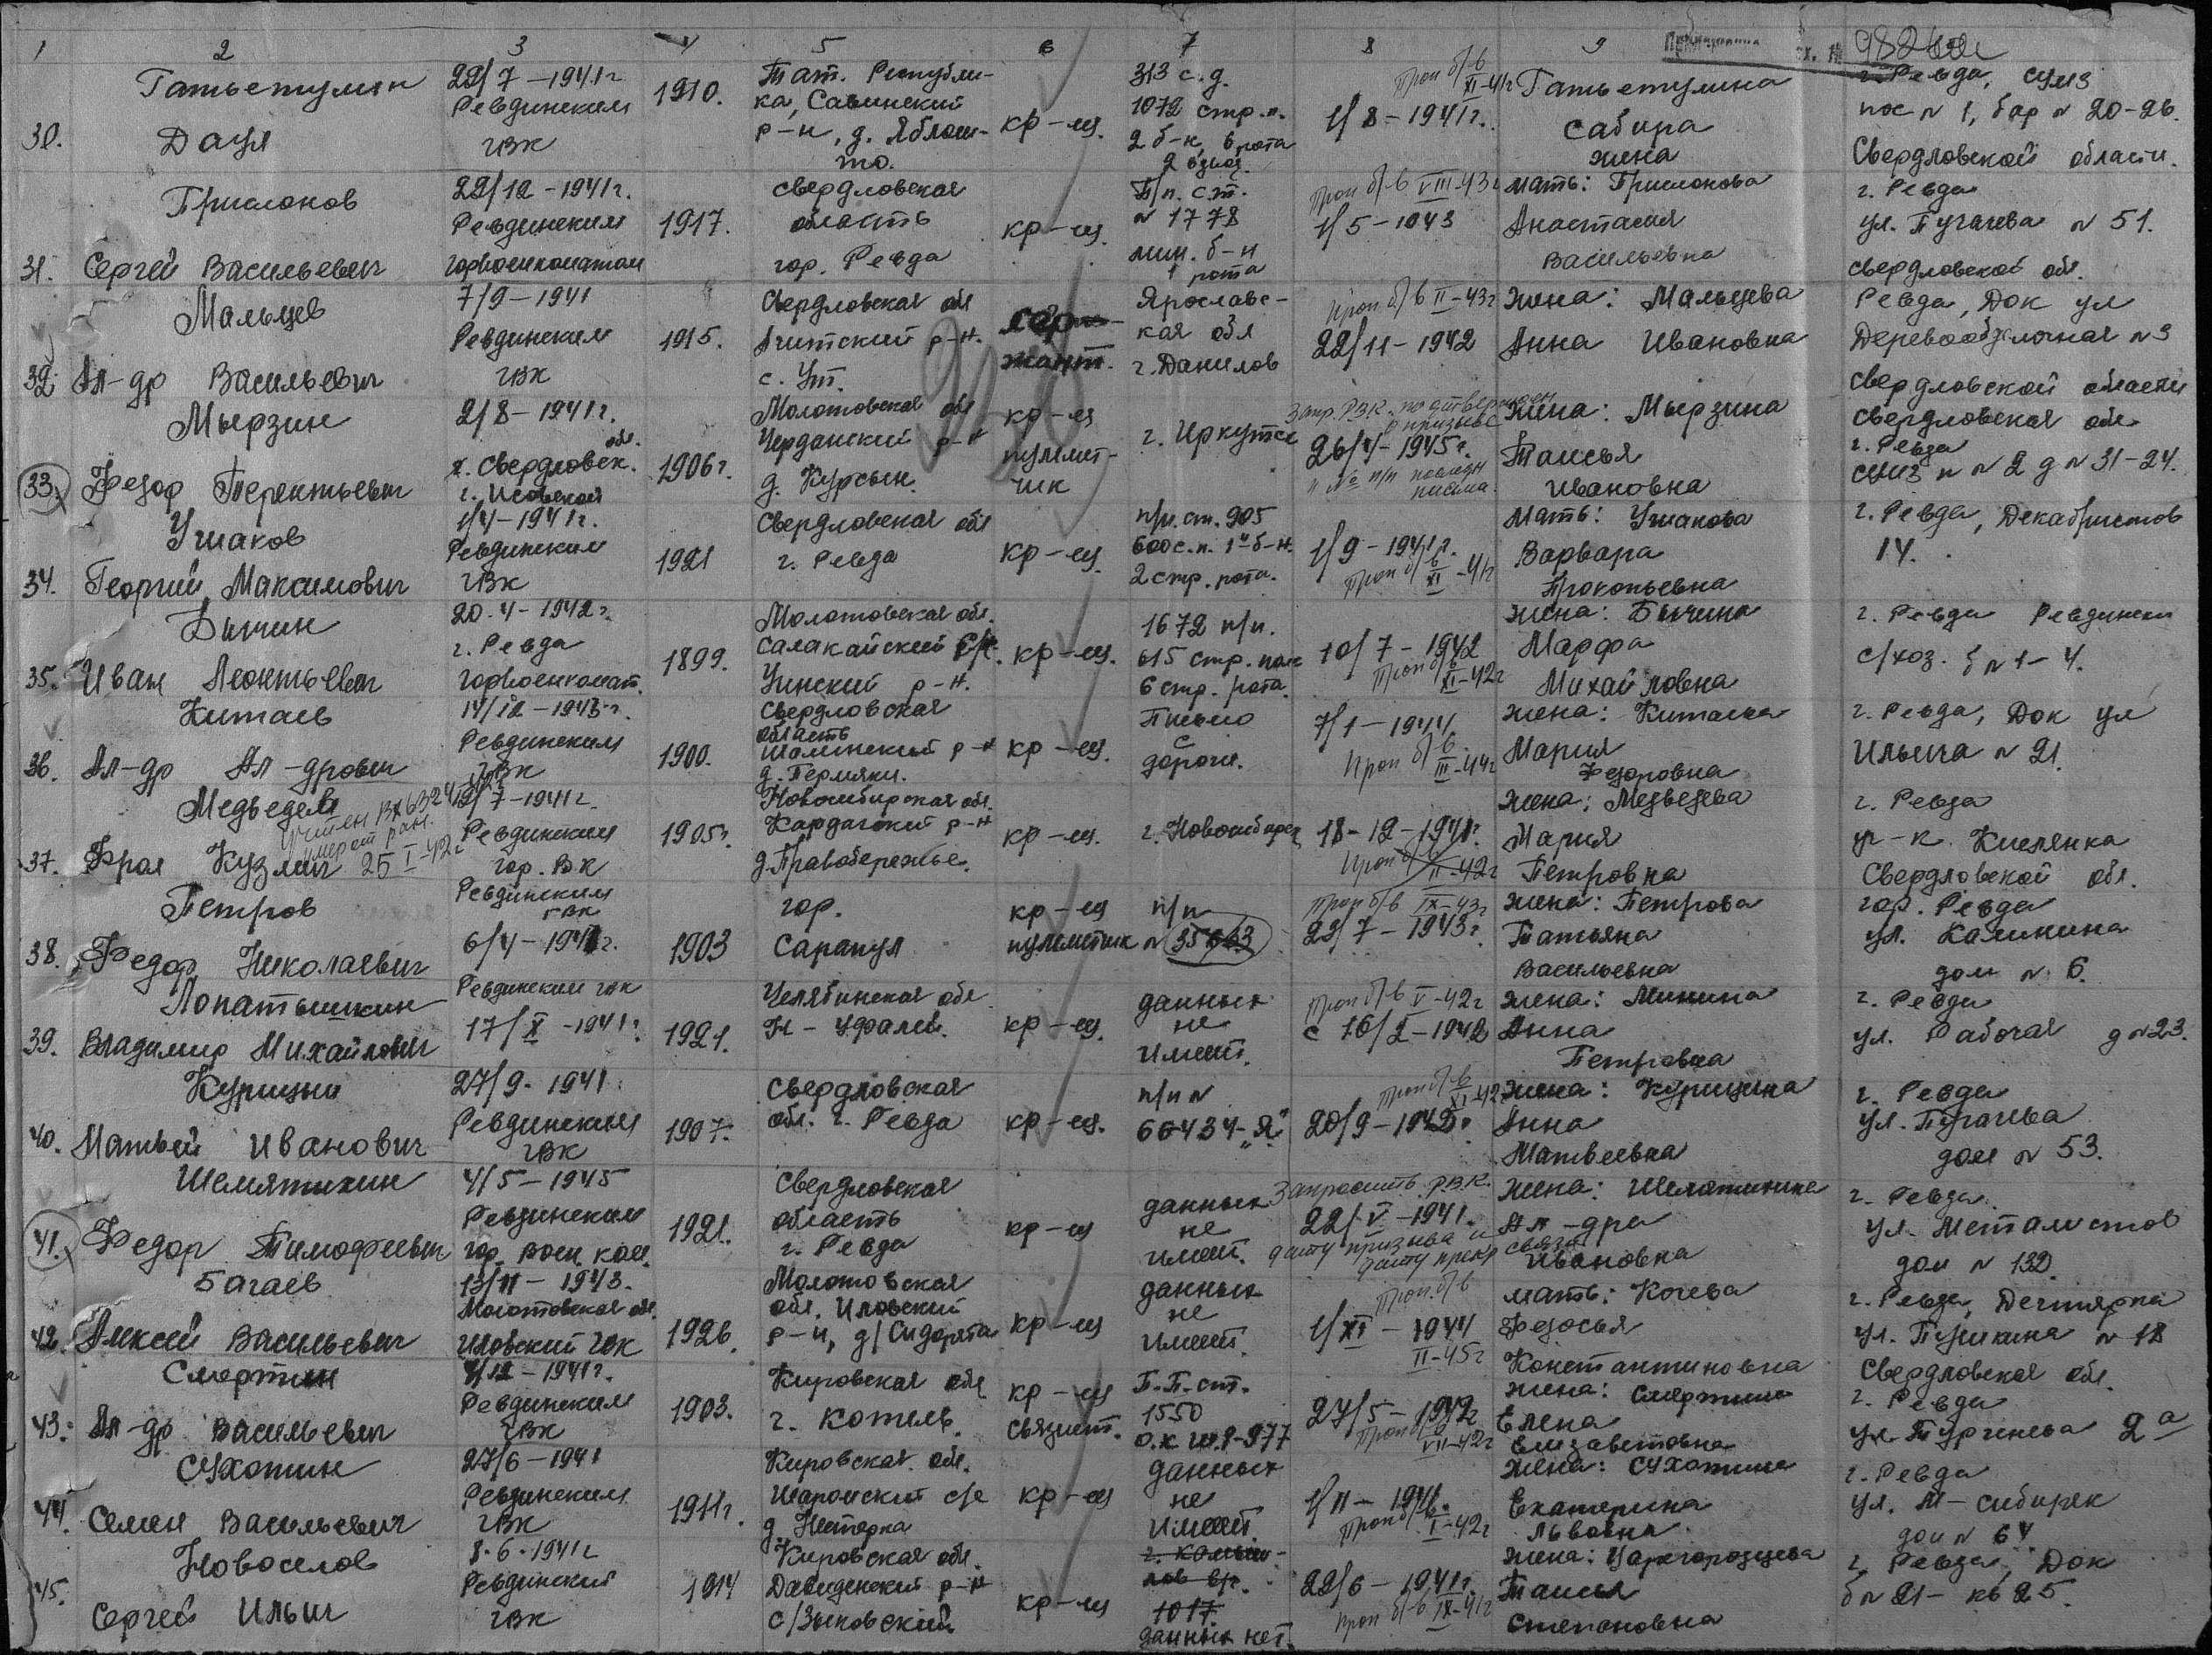 1 2 3 4 5 6 7 8 9
30. Гатьетулин Дауя
22/7 – 1941 г Ревдинским ГВК
1910.
Тат. Республи-
ка, Савинский
р-н, д. Яблош-
то.
кр-ец.
313 с. д.
1072 стр. п.
2 б-н, 6 рота
2 взвод.
Проп б/в XI-41г
1/8 – 1941 г.
Гатьетулина
Сабира
жена
г. Ревда, СУМЗ
пос № 1, бар № 20-26.
Свердловской области.
31. Гришонов
Сергей Васильевич
22/12 – 1941 г.
Ревдинским
горвоенкоматом
1917.
Свердловская
область
гор. Ревда
кр-ец.
П/п. ст.
№ 1778
мин. б-н
1 рота
Проп б/в VIII-43г
1/5 – 1943
мать: Гришонова
Анастасия
Васильевна
г. Ревда
ул. Пугачева № 51.
Свердловской обл.
32. Мальцев
Ал-др Васильевич
7/9 – 1941
Ревдинским
ГВК
1915.
Свердловская обл
Ачитский р-н.
с. Ут.
сер-
жант.
Ярославс-
кая обл
г. Данилов
Проп б/в II-43г
22/11 – 1942
жена: Мальцева
Анна Ивановна
Ревда, Док ул
Деревообделочная № 3
Свердловской области
33. Мырзин
Федор Терентьевич
2/8 – 1941 г.
х. Свердловск. обл.
г. Исовской
1906 г.
Молотовская обл
Черданский р-н
д. Курсын.
кр-ец
пулемет-
чик
г. Иркутск
Запр. РВК. подтвержден
о призыве
26/4 – 1945 г.
и № п/п последн
письма.
жена: Мырзина
Таисья
Ивановна
Свердловская обл
г. Ревда
СУМЗ п № 2 д № 31-24.
34. Ушаков
Георгий Максимович
1/4 – 1941 г.
Ревдинским
ГВК
1921
Свердловская обл
г. Ревда
кр-ец.
п/п. ст. 905
600 с. п. 1й б-н.
2 стр. рота.
1/9 – 1941 г.
Проп б/в XI-41г
Мать: Ушакова
Варвара
Прокопьевна
г. Ревда, Декабристов
14.
35. Бычин
Иван Леонтьевич
20. 4 – 1942 г.
г. Ревда
горвоенкомат.
1899.
Молотовская обл.
Салакайский с/с.
Уинский р-н.
кр-ец.
1672 п/п.
615 стр. полк
6 стр. рота.
10/7 – 1942
Проп б/в XI-42г
жена: Бычина
Марфа
Михайловна
г. Ревда Ревдински
с/хоз. б № 1 – 4.
36. Китаев
Ал-др Ал-дрович
14/12 – 1943 г.
Ревдинским
ГВК
1900.
Свердловская
область
Шалинский р-н
д. Пермяки.
кр-ец.
Письмо
с
дороги.
7/1 – 1944
Проп б/в III-44г
жена: Китаева
Мария
Федоровна
г. Ревда, Док ул
Ильича № 21.
37. Медведев
Фрол Кузмич
умер от ран. 25 I-42г
7 – 1941 г.
Ревдинским
гор. ВК
1905 г.
Новосибирская обл.
Каргатский р-н
д. Правобережье.
кр-ец.
г. Новосибирск
18 – 12 – 1941 г.
Проп б/в II-42г
жена: Медведева
Мария
Петровна
г. Ревда
уч-к. Кислянка
Свердловской обл.
38. Петров
Федор Николаевич
Ревдинским
ГВК
6/4 – 1941 г.
1903
гор.
Сарапул
кр-ец
пулеметчик
п/п
№ 35763
Проп б/в IX-43г
23/7 – 1943 г.
жена: Петрова
Татьяна
Васильевна
гор. Ревда
ул. Калинина
дом № 6.
39. Лопатышкин
Владимир Михайлович
Ревдинский ГВК
17/X – 1941 г.
1921.
Челябинская обл
Н-Уфалей.
кр-ец.
данных
не
имеет.
Проп б/в V-42г
с 16/2 – 1942
жена: Минина
Анна
Петровна
г. Ревда
ул. Рабочая д № 23.
40. Курицын
Матвей Иванович
27/9. 1941
Ревдинским
ГВК
1907.
Свердловская
обл. г. Ревда
кр-ец.
п/п №
66434-„Я"
Проп б/в XI-42г
20/9 – 1942.
жена: Курицина
Анна
Матвеевна
г. Ревда
ул. Пугачева
дом № 53.
41. Шемятихин
Федор Тимофеевич
4/5 – 1945
Ревдинским
гор. воен. ком.
1921.
Свердловская
область
г. Ревда
кр-ец
данных
не
имеет.
Запросить РВК.
22/V – 1941.
дату призыва и
дату прекр связи
жена: Шемятихина
Ал-дра
Ивановна
г. Ревда.
ул. Металистов
дом № 132
42. Багаев
Алексей Васильевич
13/11 – 1943.
Молотовская обл
Иловский ГВК
1926.
Молотовская
обл. Иловский
р-н, д/Сидорята
кр-ец
данных
не
имеет.
Проп. б/в
1/XI – 1944
II-45г
мать: Кочева
Федосья
Константиновна
г. Ревда, Дегтярка
ул. Пушкина № 18
Свердловская обл.
43. Смертин
Ал-др Васильевич
4/12 – 1941 г.
Ревдинским
ГВК
1903.
Кировская обл
г. Котель.
кр-ец
связист.
П. П. ст.
1550
27/5 – 1942
Проп б/в VII-42г
жена: Смертина
Елена
Елизаветовна
г. Ревда
ул. Тургенева 2а
44. Сухотин
Семен Васильевич
27/6 – 1941
Ревдинским
ГВК
1911 г.
Кировская обл.
Шаромский с/с
д. Нетерка
кр-ец
данных
не
имеет.
1/11 – 1941.
Проп б/в I-42г
жена: Сухотина
Екатерина
Львовна
г. Ревда
ул. М-Сибиряк
дом № 64.
45. Новоселов
Сергей Ильич
8. 6. 1941 г
Ревдинский
ГВК
1914
Кировская обл.
Давиденский р-н
с/Зыковский
кр-ец
1017.
данных нет.
22/6 – 1941 г.
Проп б/в IX-41г
жена: Царегородцева
Таисья
Степановна
г. Ревда, Док
б № 21 – кв 25.